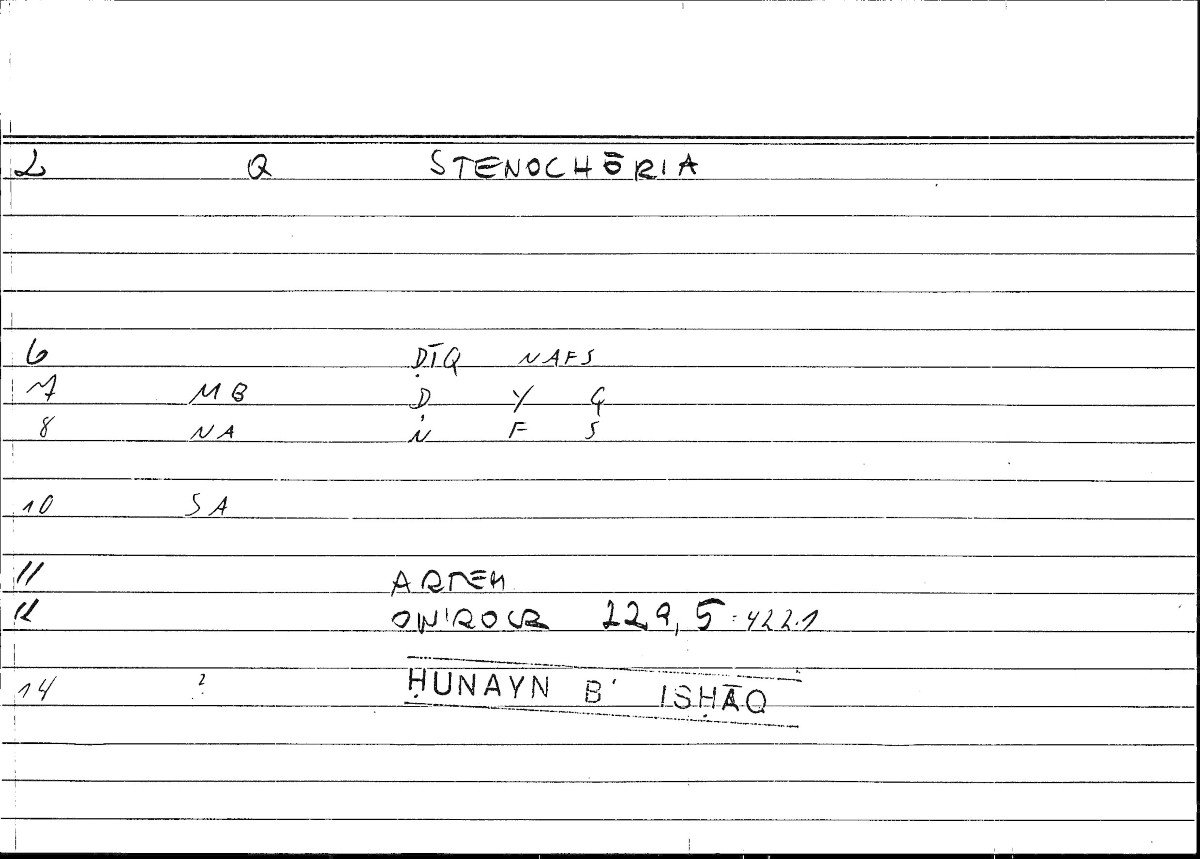 2 Q STENOCHŌRIA
6 ḌĪQ NAFS
7 MB Ḍ Y Q
8 NA N F S
10 SA
11 ARTEM
12 ONIROCR 229,5 : 422.1
14 ? ḤUNAYN B' ISḤĀQ